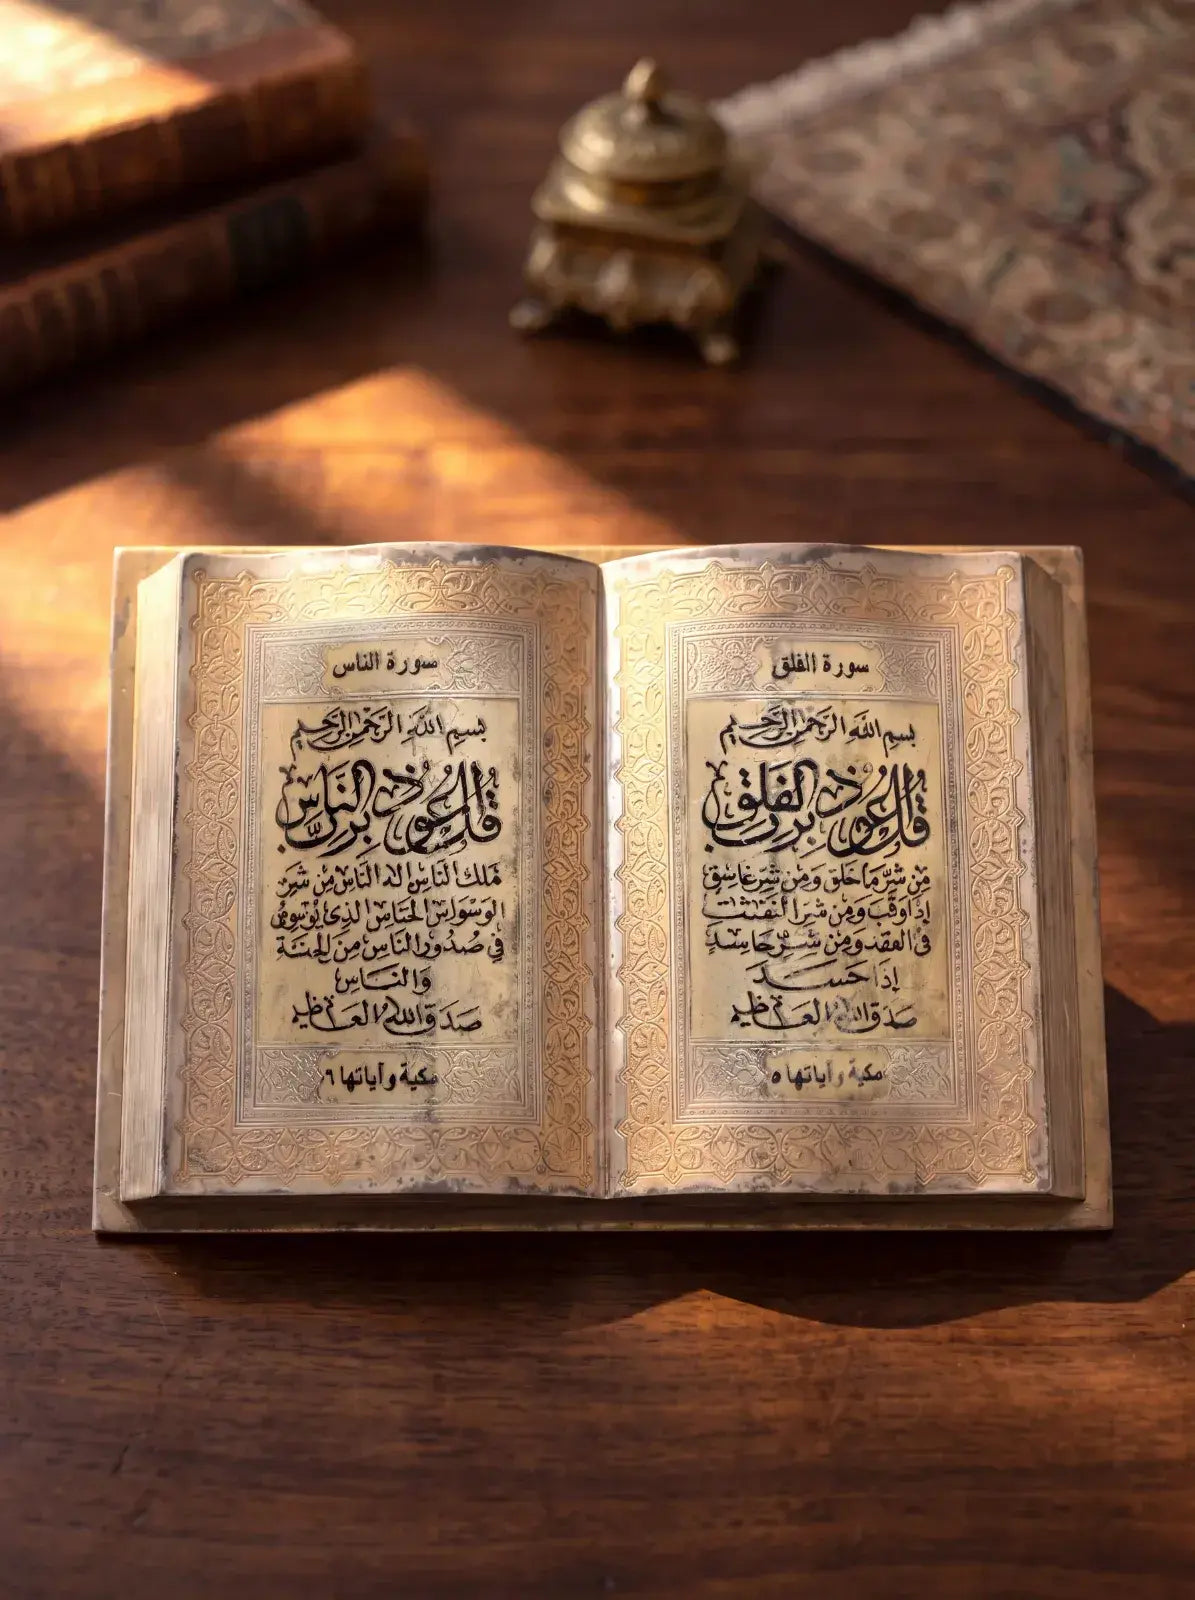 سورة الفلق
بسم الله الرحمن الرحيم
قل اعوذ برب الفلق
من شر ما خلق ومن شر غاسق
اذا وقب ومن شر النفثت
في العقد ومن شر حاسد
إذا حسد
صدق الله العظيم
مكية وآياتها ٥
سورة الناس
بسم الله الرحمن الرحيم
قل اعوذ برب الناس
ملك الناس اله الناس من شر
الوسواس الخناس الذي يوسوس
في صدور الناس من الجنة
والناس
صدق الله العظيم
مكية وآياتها ٦